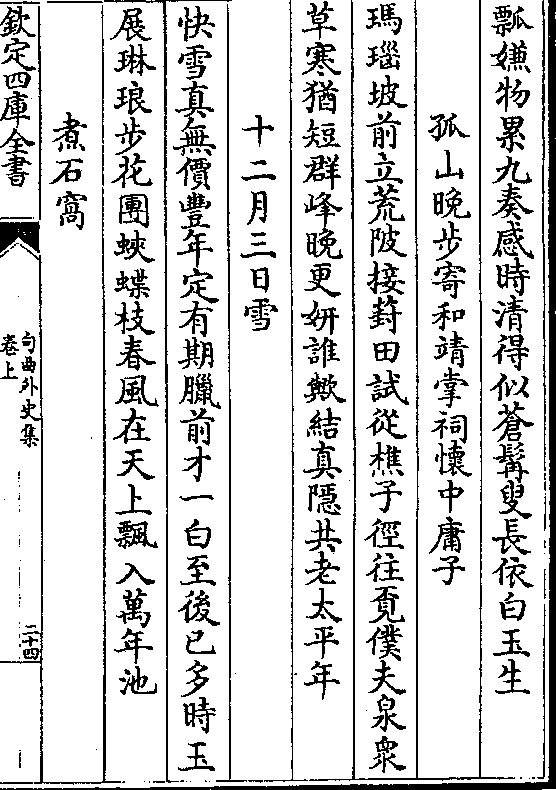 瓢嫌物累九奏感時清得似蒼髯叟長依白玉生
孤山晚步寄和靖掌祠懷中庸子
瑪瑙坡前立荒陂接葑田試從樵子徑往覔僕夫泉衆
草寒猶短群峰晚更妍誰歟結真隱共老太平年
十二月三日雪
快雪真無價豐年定有期臘前才一白至後已多時玉
展琳琅步花團蛺蝶枝春風在天上飄入萬年池
煮石窩
欽定四庫全書
句曲外史集
卷上
二十四